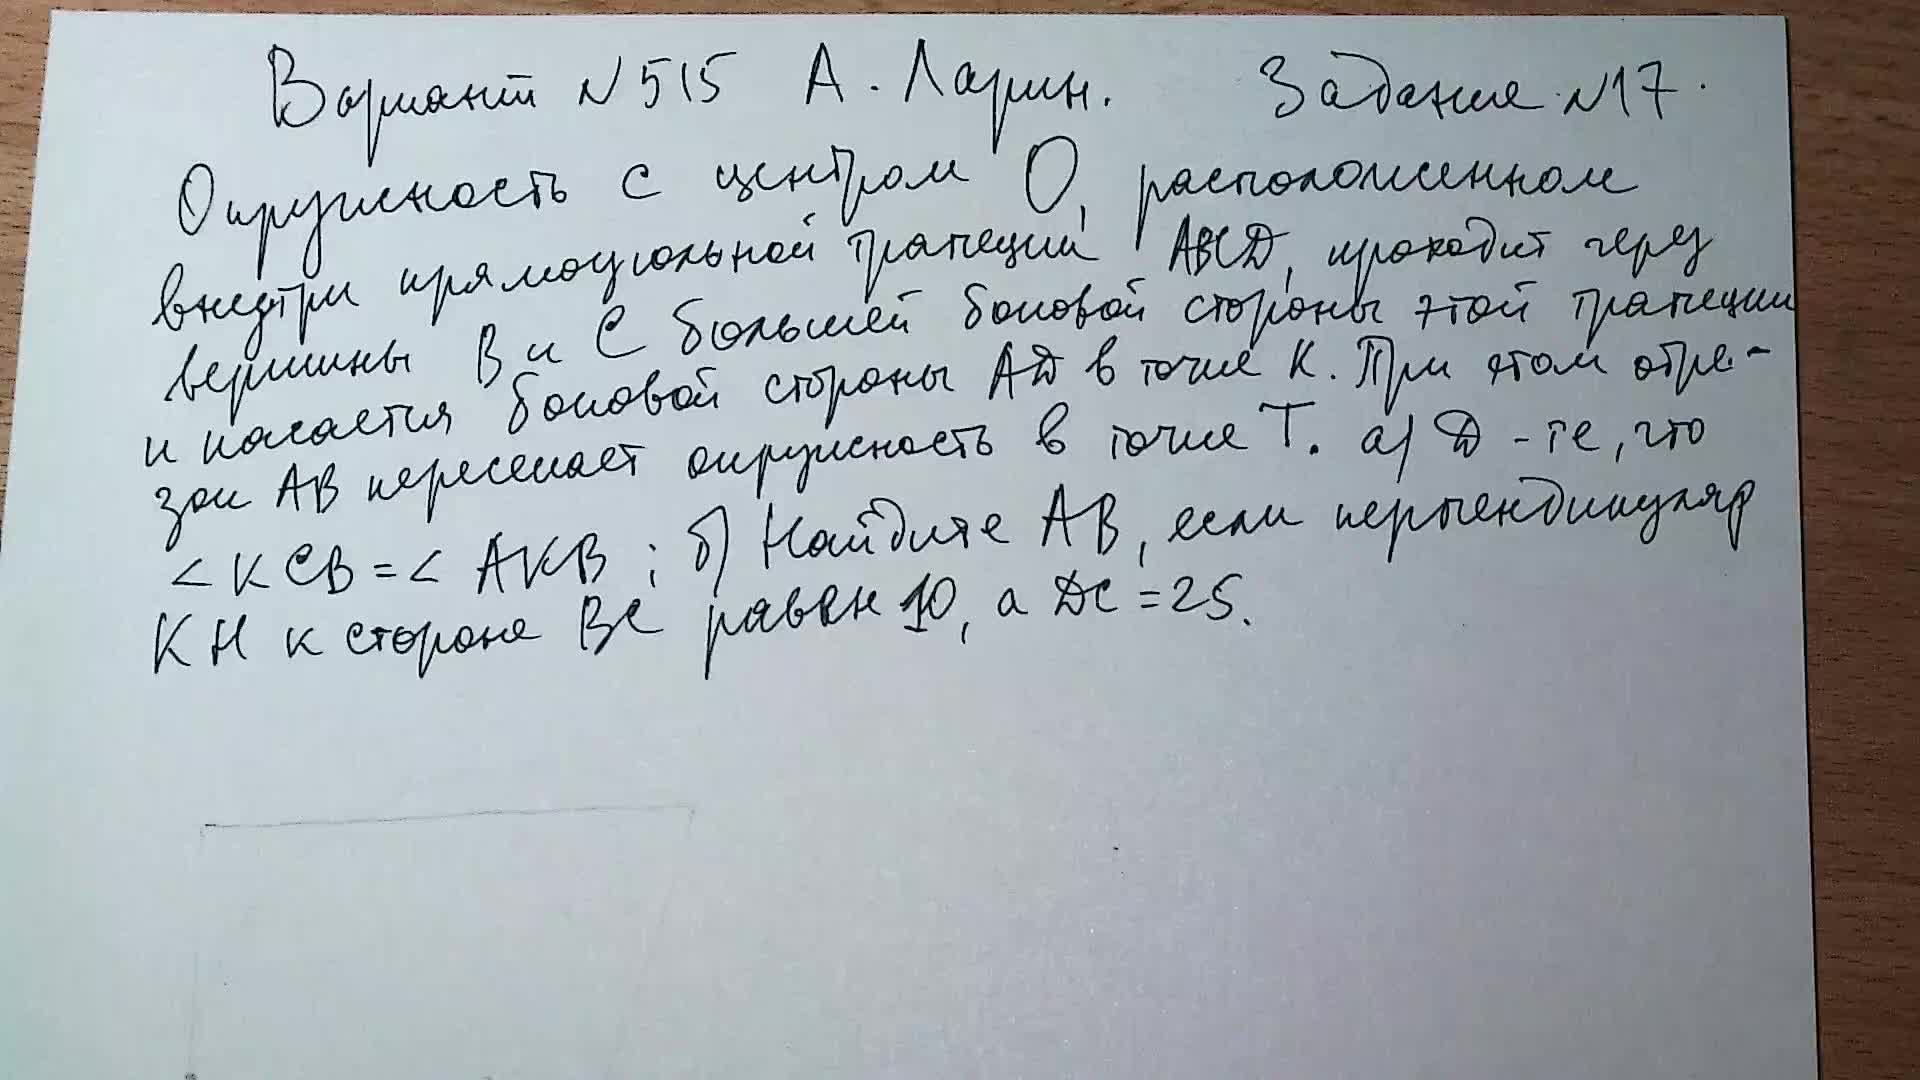 Вариант №515 А. Ларин. Задание №17.
Окружность с центром О, расположенном
внутри прямоугольной трапеции ABCD, проходит через
вершины В и С большей боковой стороны этой трапеции
и касается боковой стороны AD в точке К. При этом отре-
зок АВ пересекает окружность в точке Т. а) Д-те, что
< KCB = < AKB ; б) Найдите АВ, если перпендикуляр
КН к стороне ВС равен 10, а DC = 25.